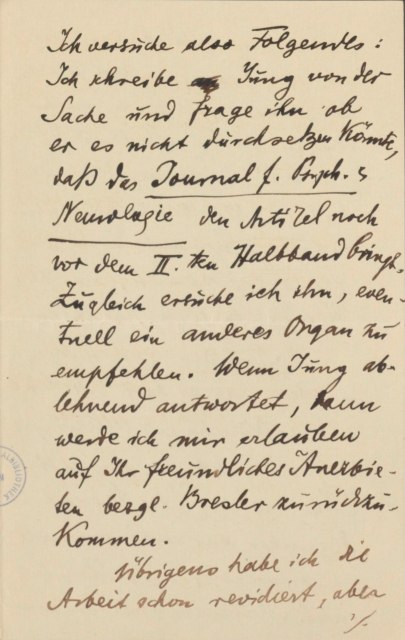 Ich versuche also Folgendes:
Ich schreibe an Jung von der
Sache und frage ihn ob
er es nicht durchsetzen könnte,
daß das Journal f. Psych. &
Neurologie den Artikel noch
vor dem II.ten Halbband bringt.
Zugleich ersuche ich ihn, even-
tuell ein anderes Organ zu
empfehlen. Wenn Jung ab-
lehnend antwortet, dann
werde ich mir erlauben
auf Ihr freundliches Anerbie-
ten bezgl. Bresler zurückzu-
kommen.
Übrigens habe ich die
Arbeit schon revidiert, aber
./.